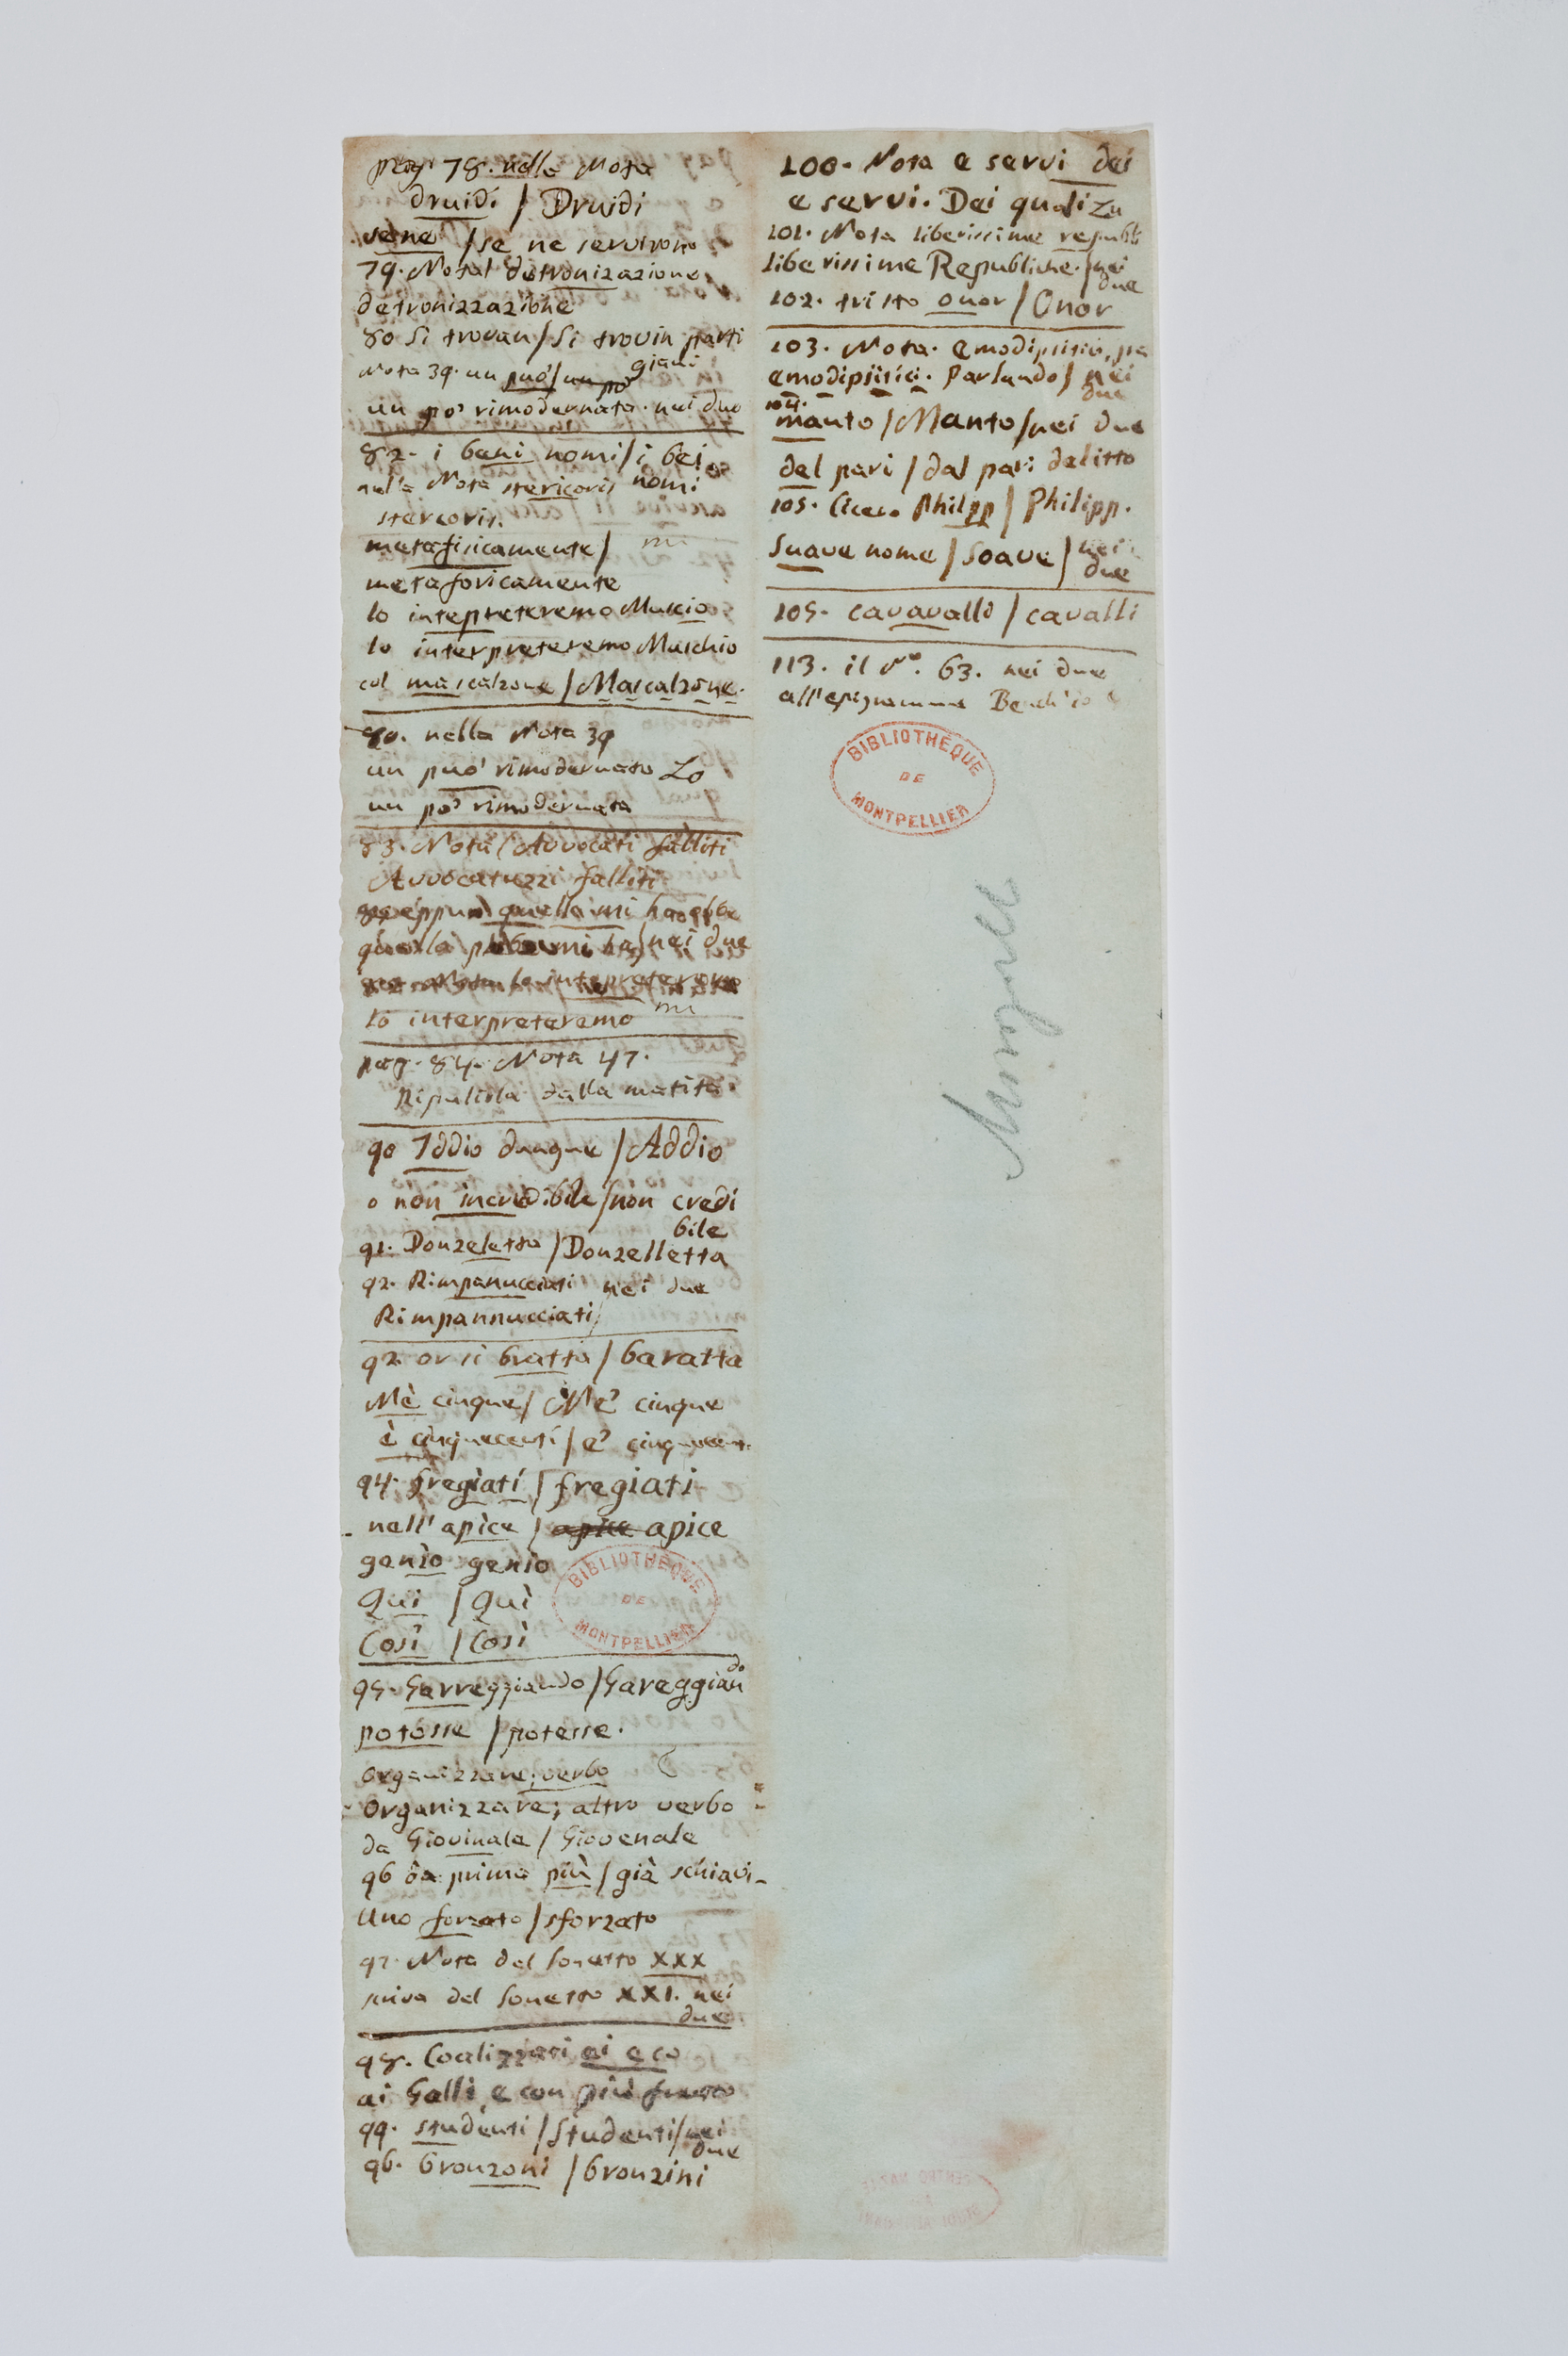 pag. 78. nella Nota
druidi / Druidi
sene / se ne servirono
79. Nota detronizazione
detronizzazione
80 Si trovan / Si trovin parti
giani
Nota 39. un può / un po
un po' rimodernata. nei due
82. i beni nomi / i bei
nomi
nella Nota stericoris
stercoris.
metafisicamente /
metaforicamente
lo intepreteremo Muscio
lo interpreteremo Muschio
col mascalzone / Mascalzone.
80. nella Nota 39
un puo' rimodernato Lo
un po' rimodernata
83. Nota / Avvocati falliti
Avvocatuzzi falliti
quella mi
quella mi ha / nei due
lo interpreteremo
pag. 84. Nota 47.
Ripulirla dalla matita
90 Iddio dunque / Addio
o non incredibile / non credi
bile
91. Donzeletta / Donzelletta
92. Rimpanucciati nei due
Rimpannucciati
92. or si bratta / baratta
Mè cinque / Me' cinque
è cinquecenti / e' cinquecent.
94. fregiati / fregiati
nell' apìce / apice apice
genìo genio
Qui / Quì
Così / Così
95. Garreggiando / Gareggian
do
potosse / potesse.
organizzare; verbo
Organizzare; altro verbo
da Giovinale / Giovenale
96 da prima più / già schiavi
Uno forzato / sforzato
97. Nota del Sonetto XXX
scriva del Sonetto XXI. nei
due
98. Coalizzati ai e co
ai Galli e con più
99. studenti / Studenti / nei
due
96. bronzoni / bronzini
100. Nota e servi dei
e servi. Dei quali Zu
101. Nota liberissime republi
liberissime Republiche. / nei
due
102. tristo onor / Onor
103. Nota. emodipsitio, pa
emodipsitici. Parlando / nei
due
104.
manto / Manto / nei due
del pari / dal pari delitto
105. Cicero Philpp / Philipp.
Suave nome / Soave / nei
due
105. cavavalli / cavalli
113. il N.º 63. nei due
all'epigramma
BIBLIOTHÈQUE
DE
MONTPELLIER
BIBLIOTHÈQUE
DE
MONTPELLIER